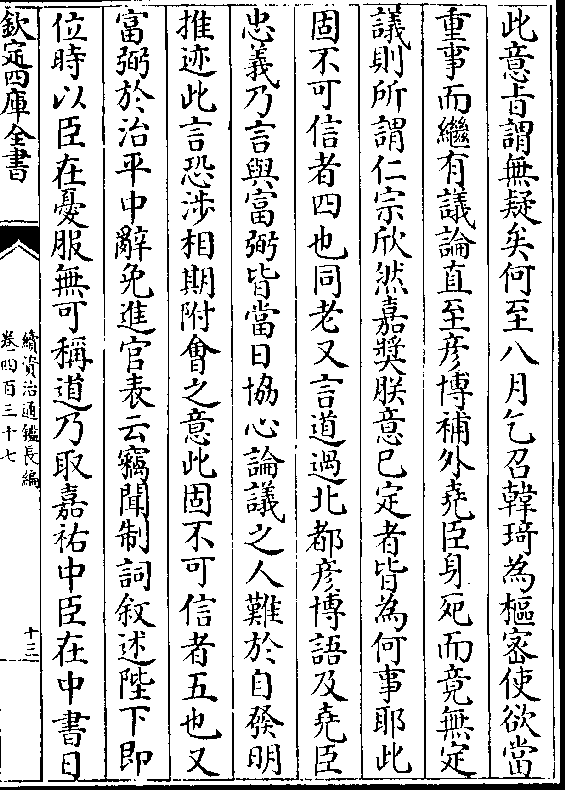 此意㫖謂無疑矣何至八月乞召韓琦為樞密使欲當
重事而繼有議論直至彦博補外堯臣身死而竟無定
議則所謂仁宗欣然嘉奬朕意已定者皆為何事耶此
固不可信者四也同老又言道過北都彦博語及堯臣
忠義乃言與富弼皆當日協心論議之人難於自發明
推迹此言恐涉相期附會之意此固不可信者五也又
富弼於治平中辭免進官表云竊聞制詞叙述陛下即
位時以臣在憂服無可稱道乃取嘉祐中臣在中書日
欽定四庫全書
續資治通鑑長編
卷四百三十七
十三